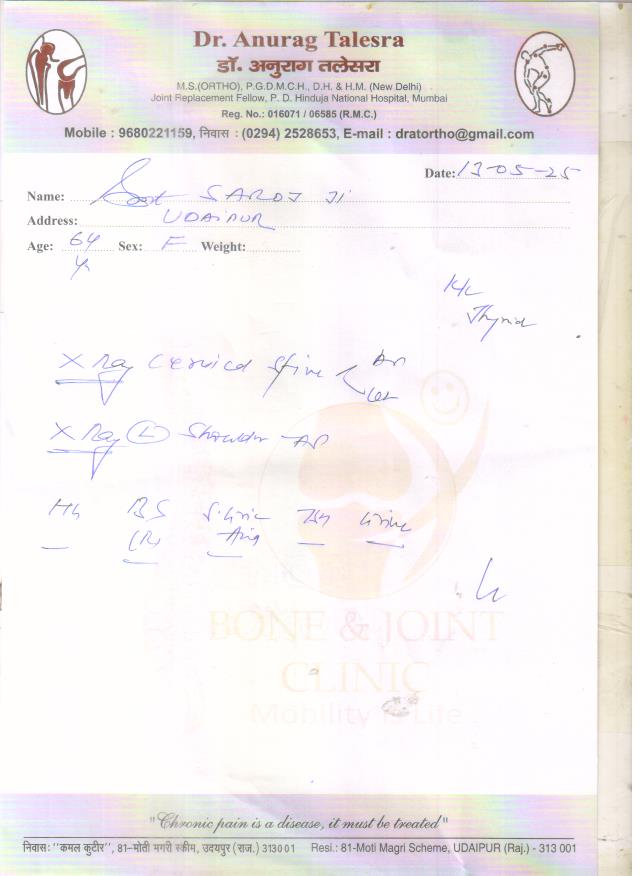 Dr. Anurag Talesra
डॉ. अनुराग तलेसरा
M.S.(ORTHO), P.G.D.M.C.H., D.H. & H.M. (New Delhi)
Joint Replacement Fellow, P. D. Hinduja National Hospital, Mumbai
Reg. No.: 016071 / 06585 (R.M.C.)
Mobile : 9680221159, निवास : (0294) 2528653, E-mail : dratortho@gmail.com
Date: 13-05-25
Name: SAROJ Ji
Address: UDAIPUR
Age: 64 y Sex: F Weight:
K/c
Thyroid
X Ray Cervical Spine AP
Lat
X Ray (L) Shoulder - AP
Hb BS S. Uric TSH Urine
(R) Acid
BONE & JOINT
CLINIC
Mobility is Life
"Chronic pain is a disease, it must be treated"
निवास: "कमल कुटीर", 81-मोती मगरी स्कीम, उदयपुर (राज.) 313001 Resi.: 81-Moti Magri Scheme, UDAIPUR (Raj.) - 313 001